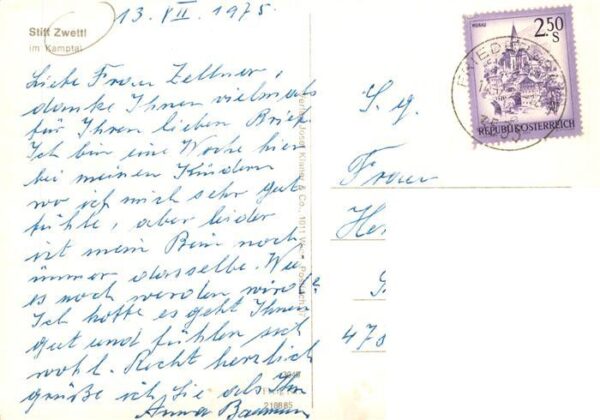 13. VII. 1975.
Stift Zwettl
im Kamptal
Liebe Frau Zellner,
danke Ihnen vielmals
für Ihren lieben Brief.
Ich bin eine Woche hier
bei meinen Kindern
wo ich mich sehr gut
fühle, aber leider
ist mein Bein noch
immer dasselbe. Wie
es noch werden wird?
Ich hoffe es geht Ihnen
gut und fühlen sich
wohl. Recht herzlich
grüße ich Sie als Ihre
Anna
218885
Josef Klaner & Co., 1011
MURAU
2.50
S
REPUBLIK ÖSTERREICH
S. g.
Frau
He
470